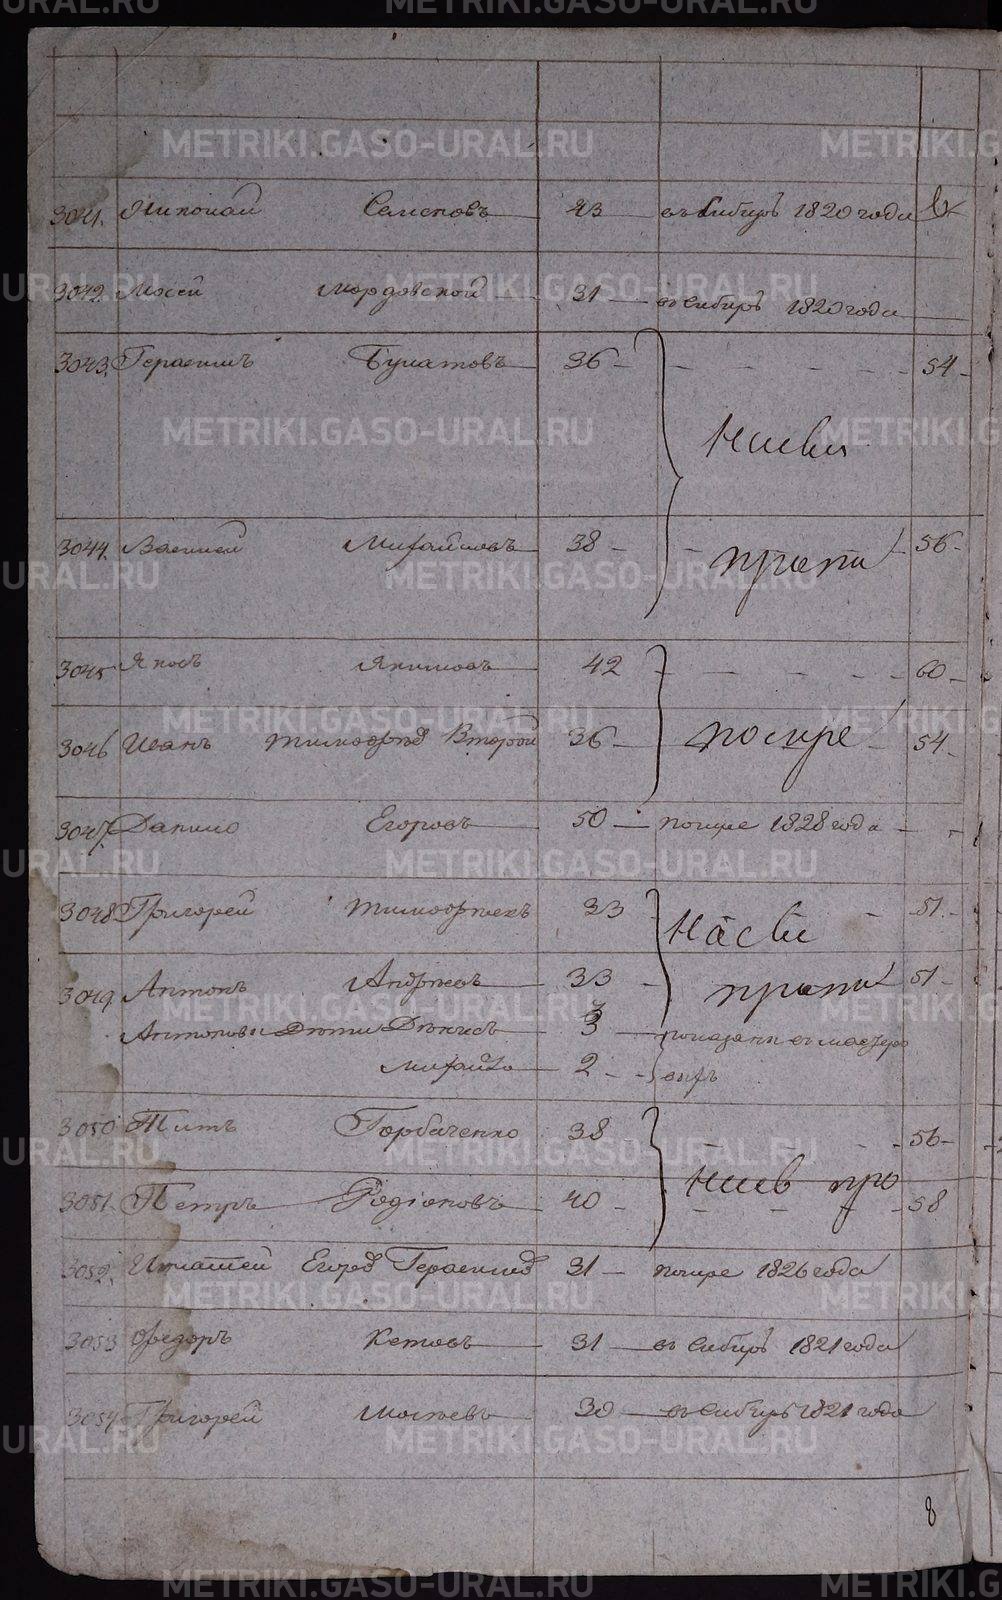 METRIKI.GASO-URAL.RU
3041. Николай Семеновъ 43 въ Сибирь 1820 года
3042. Мосей Мордовской 31 въ Сибирь 1820 года
3043. Герасимъ Булатовъ 36 54
3044. Василей Михайловъ 38 56
3045 Яковъ Якимовъ 42 60
3046 Иванъ Тимофѣевъ Второй 36 помре 54
3047. Данило Егоровъ 50 помре 1828 года
3048 Григорей Тимофѣевъ 33 51
3049 Антонъ Андреевъ 33 51
Антоновы Дѣти Денисъ 3 показаны въ мастеро
Михайло 2
3050 Титъ Горбаченко 38 56
3051. Петръ Родіоновъ 40 58
3052. Игнатей Егоровъ Герасимовъ 31 помре 1826 года
3053 Федоръ Котовъ 31 въ Сибирь 1821 года
3054 Григорей Мосѣевъ 30 въ Сибирь 1821 года
8